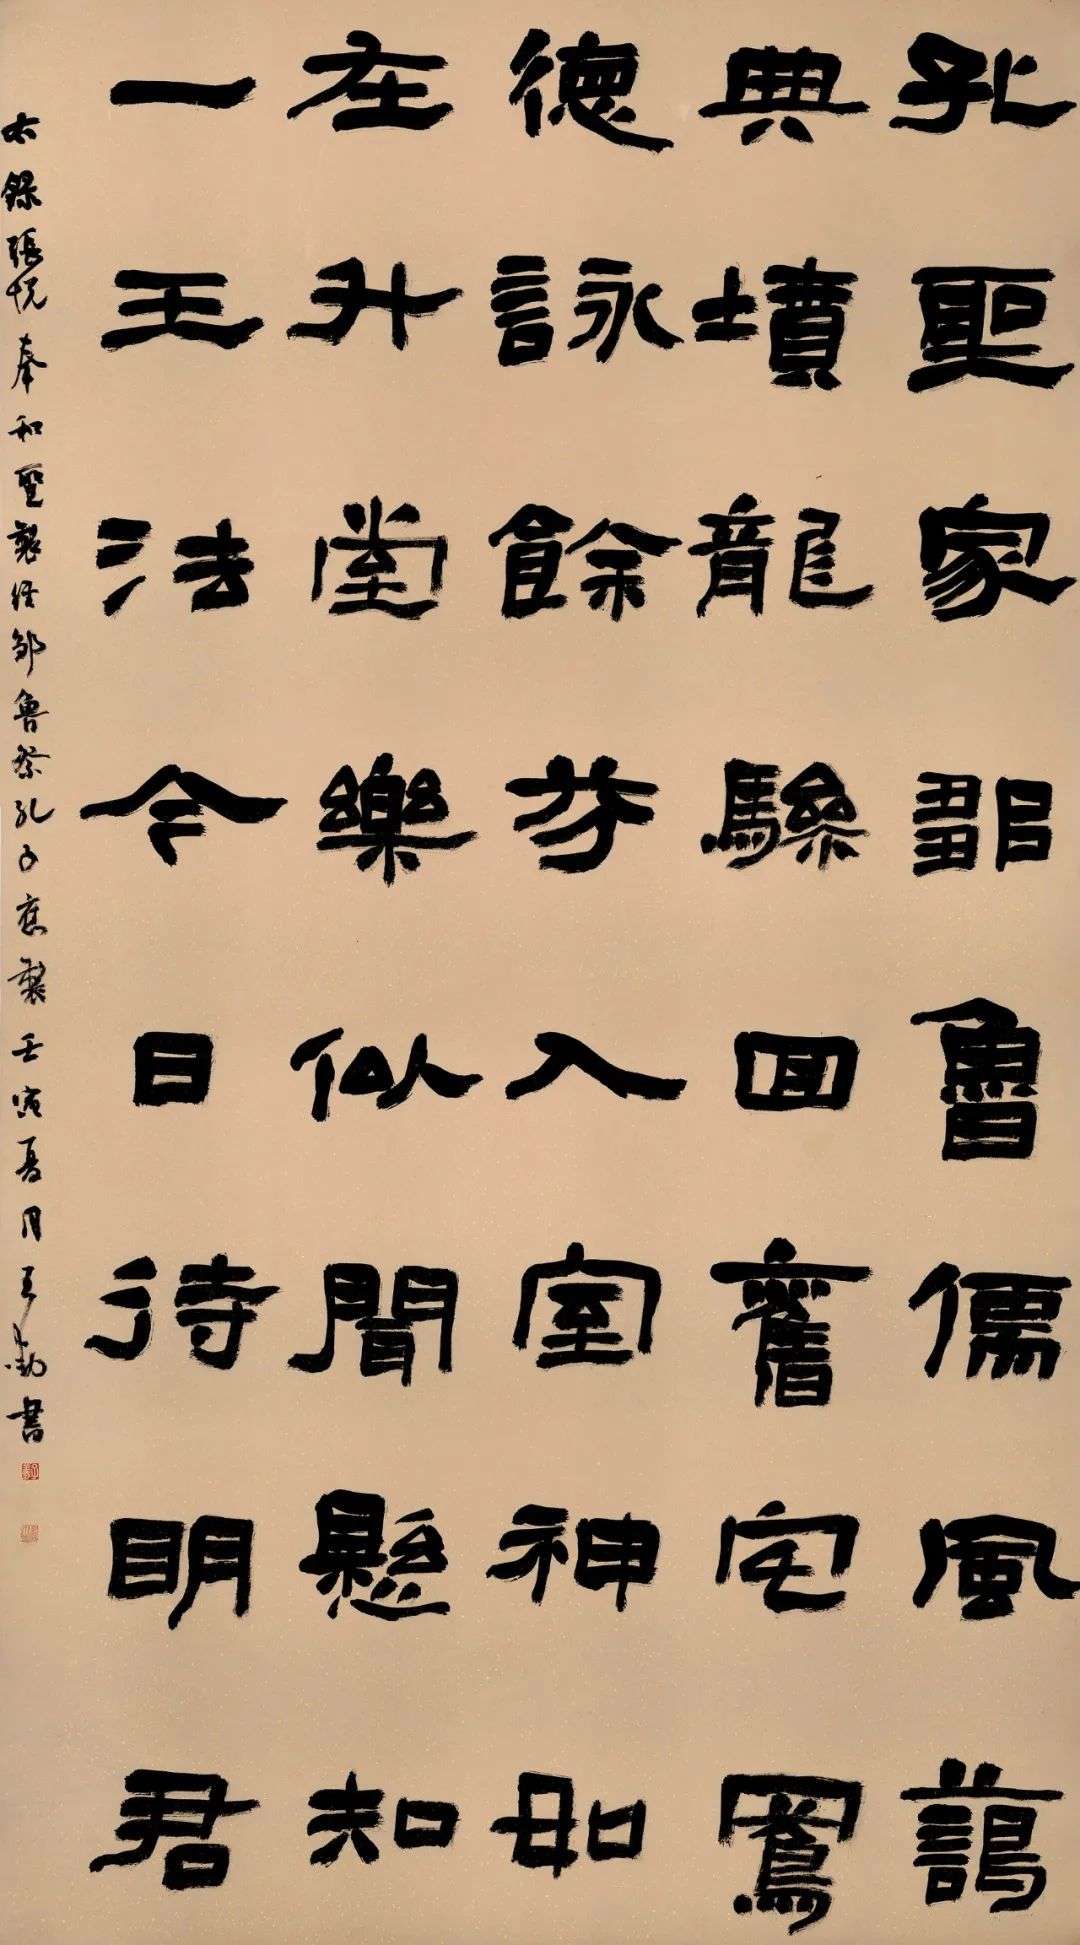 孔聖家鄒魯儒風藹
典墳龍驂回舊宅鳳
德詠餘芬入室神如
在升堂樂似聞懸知
一王法今日待明君
右錄張悅奉和聖製經鄒魯祭孔子應製壬寅夏月王書